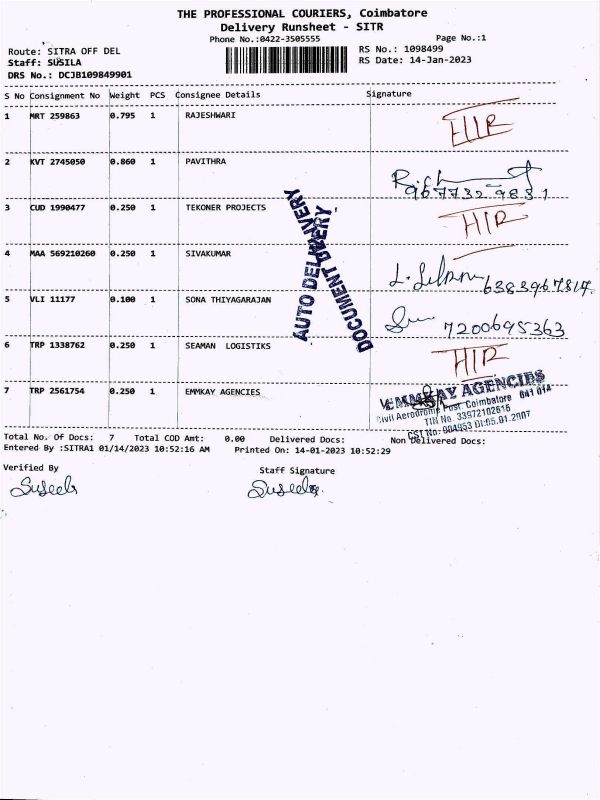 THE PROFESSIONAL COURIERS, Coimbatore
Delivery Runsheet - SITR
Phone No.:0422-3505555
Page No.:1
Route: SITRA OFF DEL
RS No.: 1098499
Staff: SUSILA
RS Date: 14-Jan-2023
DRS No.: DCJB109849901
S No Consignment No Weight PCS Consignee Details Signature
1 MRT 259863 0.795 1 RAJESHWARI
2 KVT 2745050 0.860 1 PAVITHRA
3 CUD 1990477 0.250 1 TEKONER PROJECTS HIR
4 MAA 569210260 0.250 1 SIVAKUMAR 6383967814
5 VLI 11177 0.100 1 SONA THIYAGARAJAN 7200695363
6 TRP 1338762 0.250 1 SEAMAN LOGISTIKS HIR
7 TRP 2561754 0.250 1 EMMKAY AGENCIES
AUTO DELIVERY
DOCUMENT DELIVERY
EMMKAY AGENCIES
Civil Aerodrome Post, Coimbatore 641 014
TIN No. 33972102616
CST No: 904953 Dt:05.01.2007
Total No. Of Docs: 7 Total COD Amt: 0.00 Delivered Docs: Non Delivered Docs:
Entered By :SITRA1 01/14/2023 10:52:16 AM Printed On: 14-01-2023 10:52:29
Verified By Staff Signature